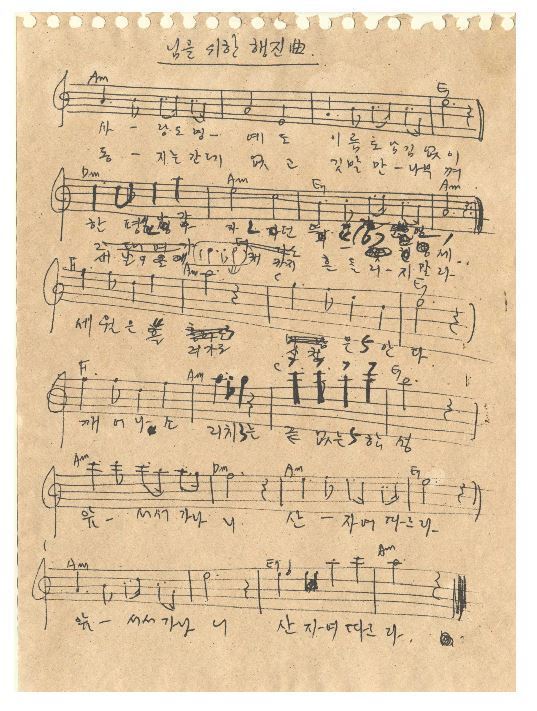 님을 위한 행진曲.
Am E7
사 - 랑도 명 - 예도 이름도 남김 없이
동 - 지는 간데 없고 깃발만 - 나부껴
Dm Am E7 Am
한 평생
세 흔들리 - 지말라 -
F Am C E7
세월은 흘러가도 은 안다
F Am C E7
깨어나소 리치는 끝없는 함성
Am Dm Am E7
앞 - 서서 가나니 산 - 자여 따르라 -
Am E7 Am
앞 - 서서 가나니 산자여 따르라.